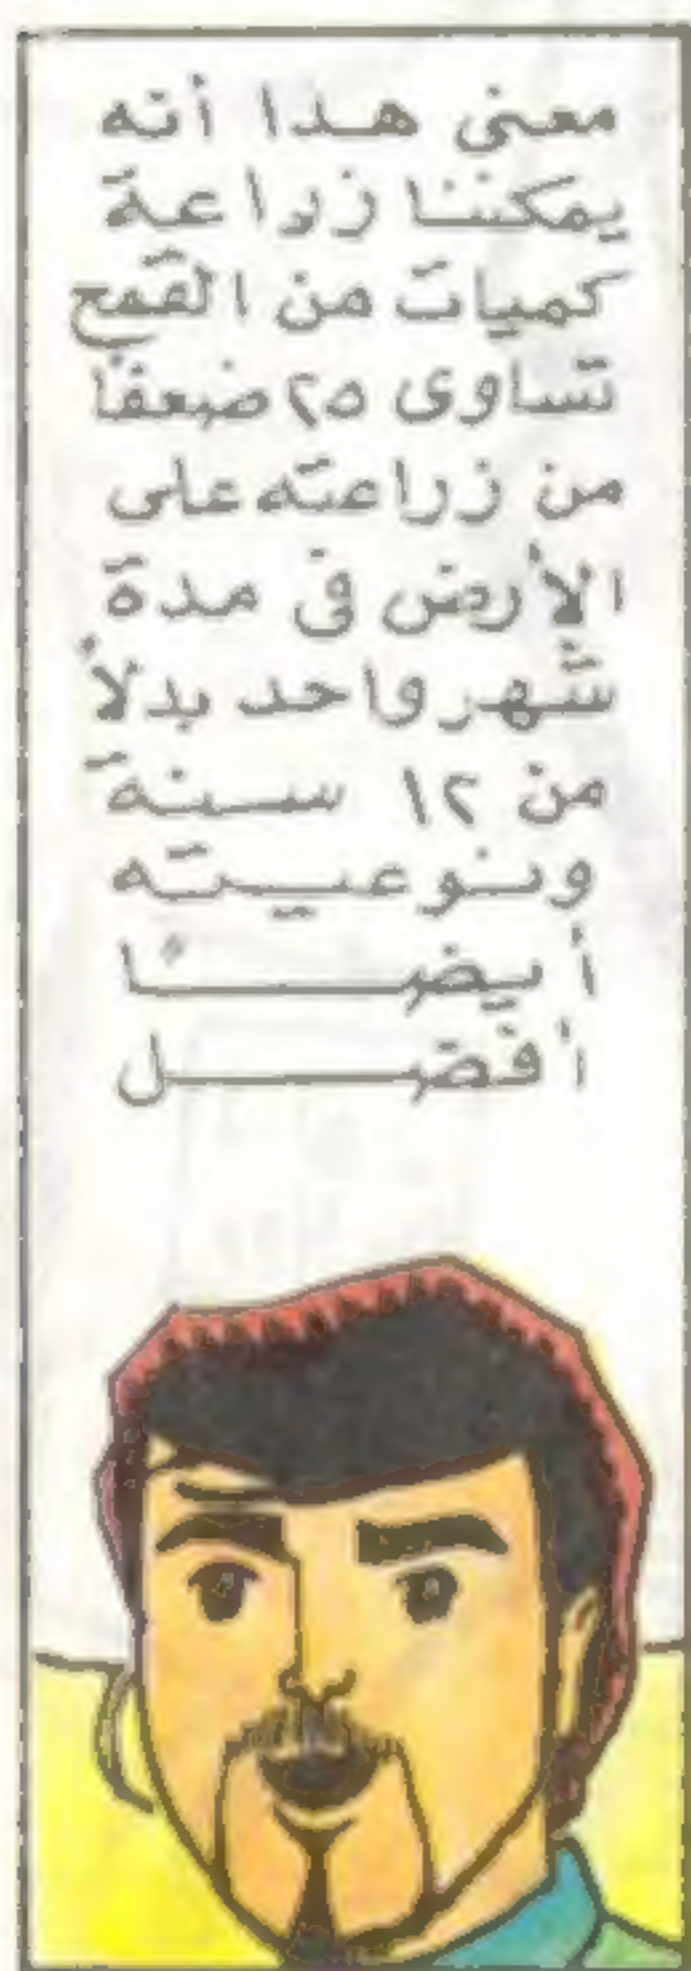 معنى هذا أنه
يمكننا زراعة
كميات من القمح
تساوى ٢٥ ضعفًا
من زراعته على
الأرض فى مدة
شهر واحد بدلاً
من ١٢ سنة
ونوعيته
أيضًا
أفضل